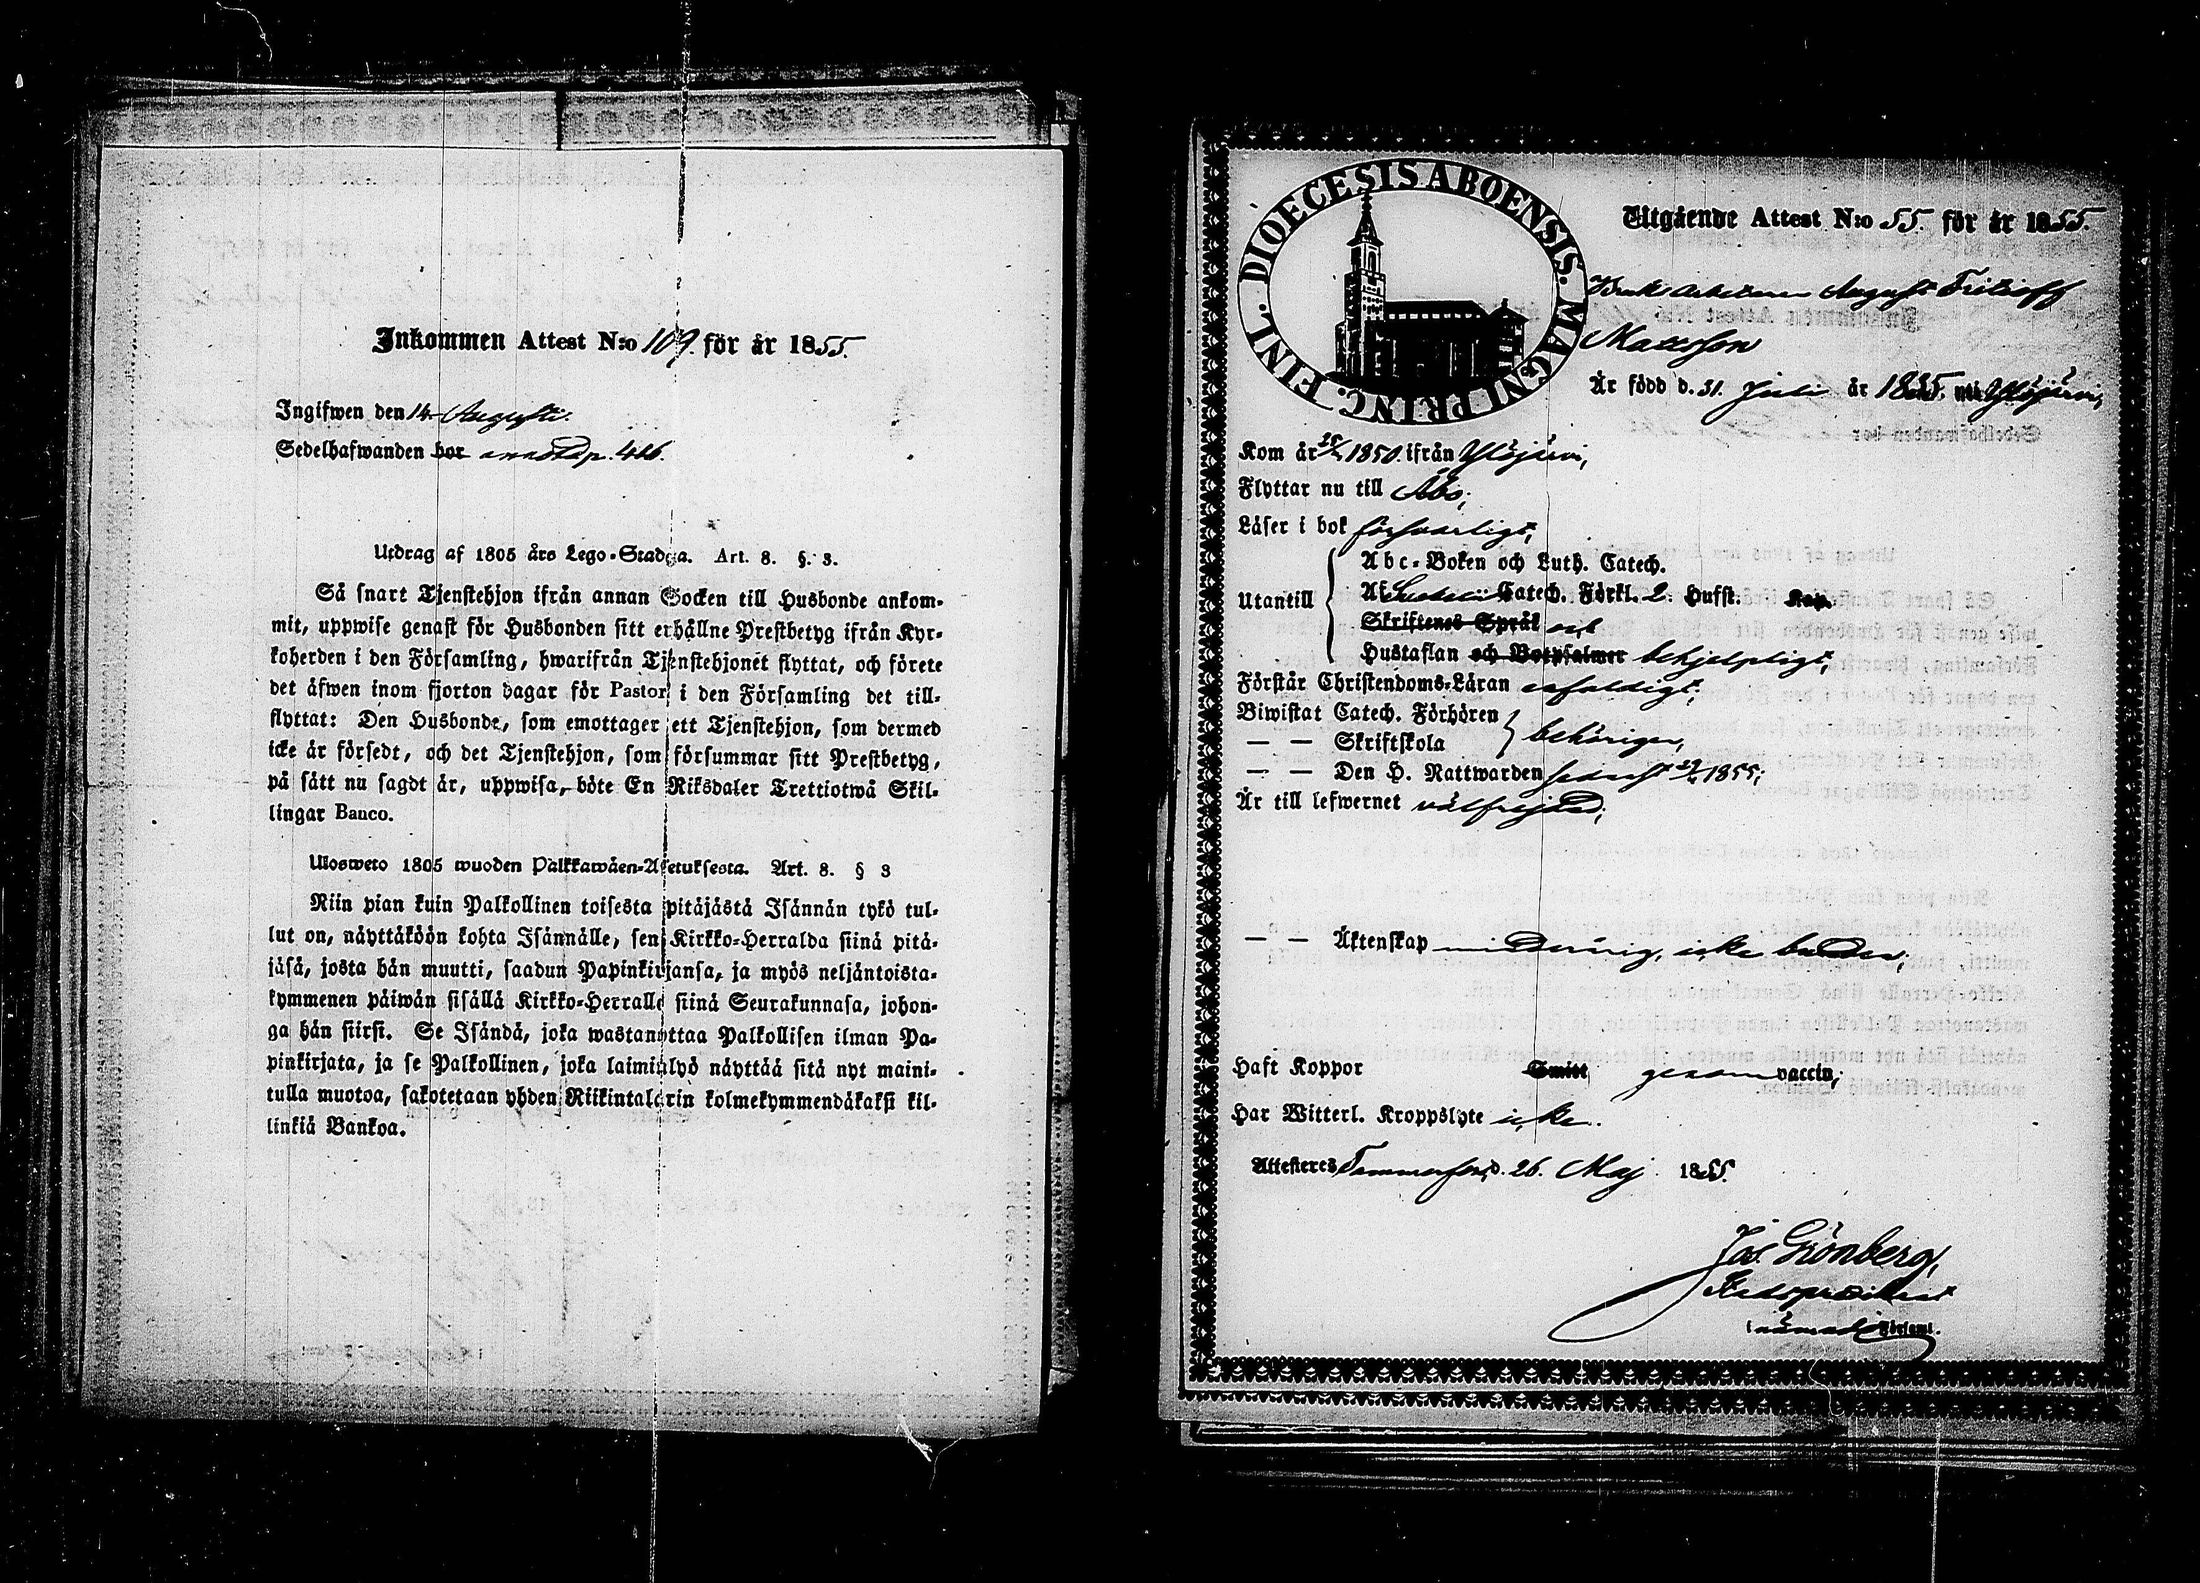 Inkommen Attest N:o 109. för år 1855.
Ingifwen den 14 Augusti.
Sedelhafwanden bor p. 426.
Utdrag af 1805 års Lego-Stadga. Art. 8. §. 3.
Så snart Tjenstehjon ifrån annan Socken till Husbonde ankom-
mit, uppwise genast för Husbonden sitt erhållne Prestbetyg ifrån Kyr-
koherden i den Församling, hwarifrån Tjenstehjonet flyttat, och förete
det äfwen inom fjorton dagar för Pastor i den Församling det till-
flyttat: Den Husbonde, som emottager ett Tjenstehjon, som dermed
icke är försedt, och det Tjenstehjon, som försummar sitt Prestbetyg,
på sätt nu sagdt är, uppwisa, böte En Riksdaler Trettiotwå Skil-
lingar Banco.
Ulosweto 1805 wuoden Palkkawäen-Asetuksesta. Art. 8. § 3
Niin pian kuin Palkollinen toisesta pitäjästä Isännän tykö tul-
lut on, näyttäköön kohta Isännälle, sen Kirkko-Herralda siinä pitä-
jäsä, josta hän muutti, saadun Papinkirjansa, ja myös neljäntoista-
kymmenen päiwän sisällä Kirkko-Herralle siinä Seurakunnasa, johon-
ga hän siirsi. Se Isändä, joka wastanottaa Palkollisen ilman Pa-
pinkirjata, ja se Palkollinen, joka laiminlyö näyttää sitä nyt maini-
tulla muotoa, sakotetaan yhden Riikintalarin kolmekymmendäkaksi kil-
linkiä Bankoa.
DIOECESIS ABOENSIS. MAGNI PRINC. FINL.
Utgående Attest N:o 55. för år 1855.
Bruks arbetaren August Fritioff
Mattsson
Är född d. 31. Juli år 1835. uti Ylöjärvi,
Kom år 1850. ifrån Ylöjärvi,
Flyttar nu till Åbo,
Läser i bok försvarligt,
Abc-Boken och Luth. Catech.
Utantill Af Catech. Förkl. 2. Hufst. Kap.
Skriftenes Språk
Hustaflan och Botpsalmer behjelpligt,
Förstår Christendoms-Läran enfaldigt,
Biwistat Catech. Förhören
— — Skriftskola behörigen,
— — Den H. Nattwarden sednast 1855,
Är till lefwernet välfrejdad,
— — Äktenskap minderårig, icke bunden,
Haft Koppor Smitt genom vaccin,
Har Witterl. Kroppslyte icke.
Attesteres Tammerfors, d. 26. Maj 1855.
Jos. Grönberg,
i nämnde Förfaml.